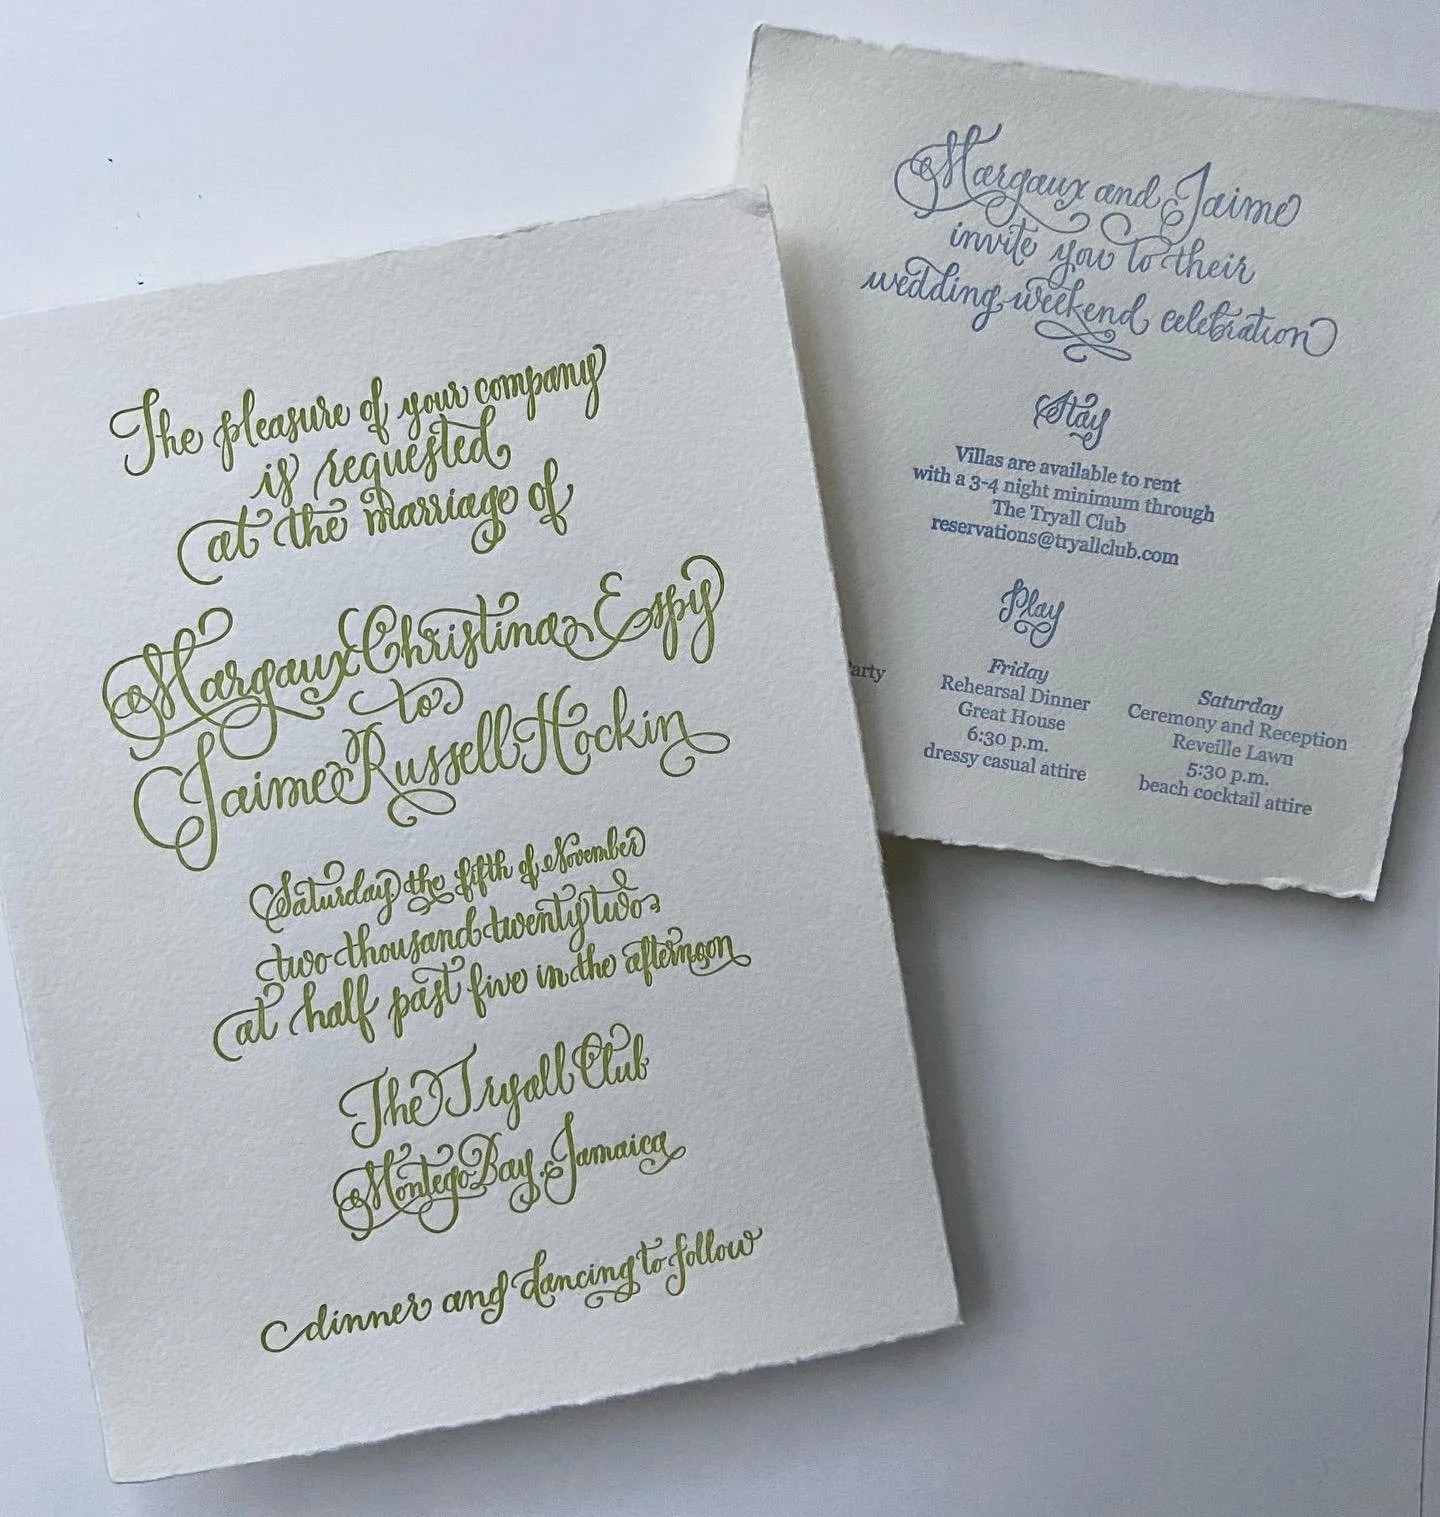 The pleasure of your company
is requested
at the marriage of
Margaux Christina Espy
to
Jaime Russell Hockin
Saturday the fifth of November
two thousand twenty two
at half past five in the afternoon
The Tryall Club
Montego Bay, Jamaica
dinner and dancing to follow
Margaux and Jaime
invite you to their
wedding weekend celebration
Stay
Villas are available to rent
with a 3-4 night minimum through
The Tryall Club
reservations@tryallclub.com
Play
arty
Friday
Rehearsal Dinner
Great House
6:30 p.m.
dressy casual attire
Saturday
Ceremony and Reception
Reveille Lawn
5:30 p.m.
beach cocktail attire